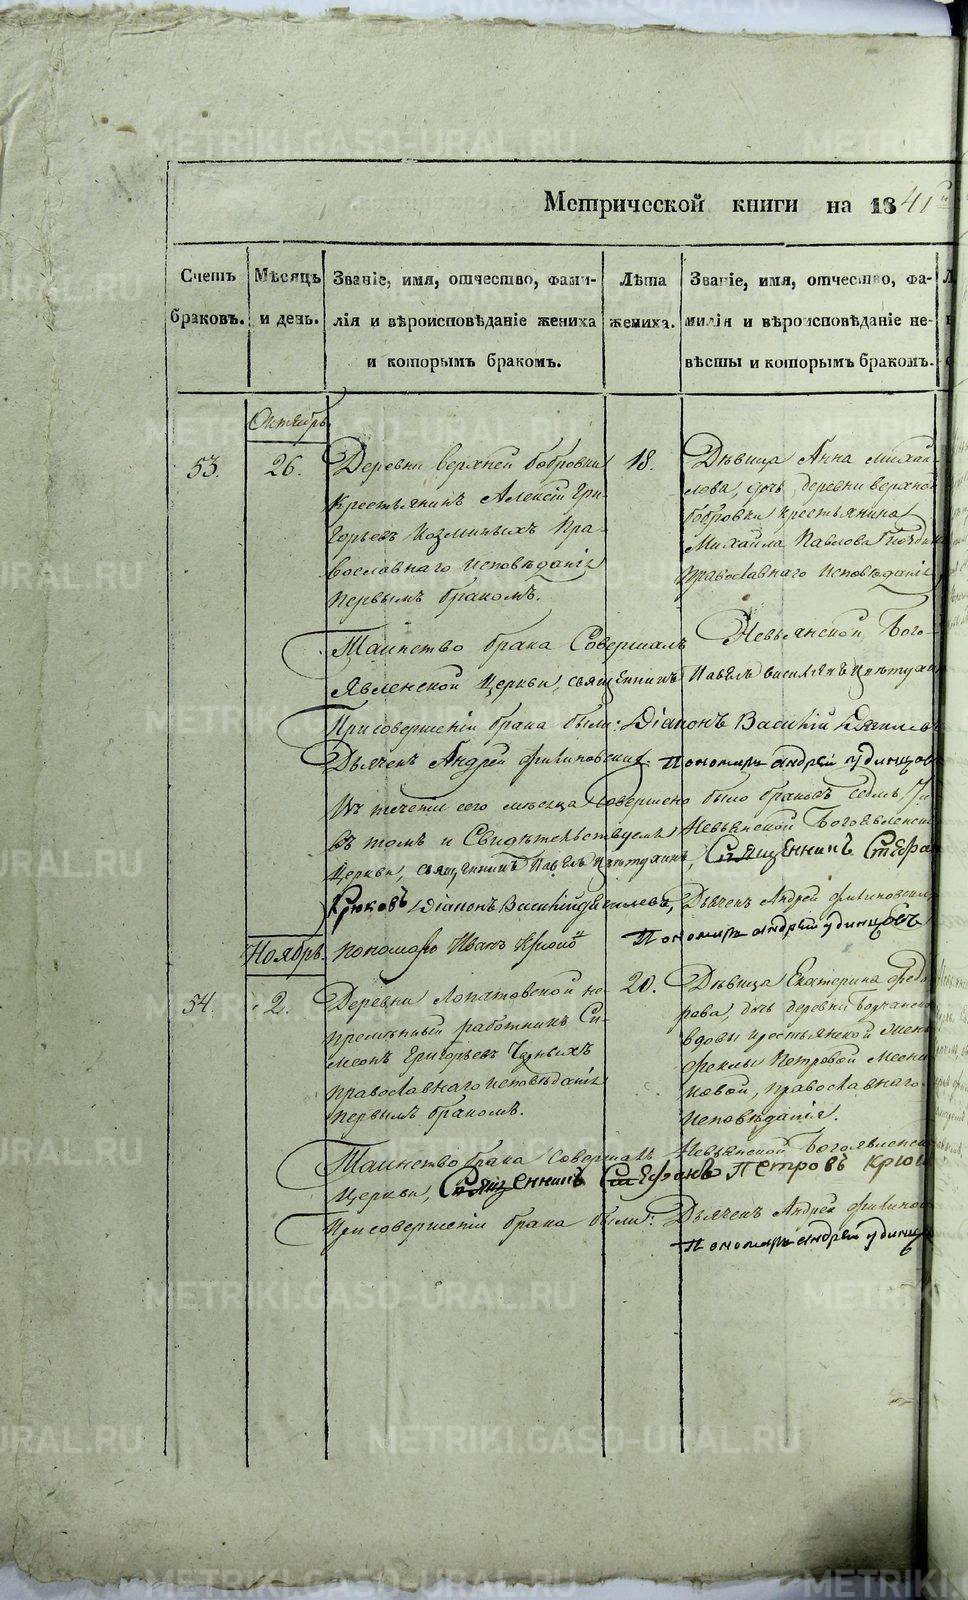 Метрической книги на 1841й
Счетъ браковъ.
Мѣсяцъ и день.
Званіе, имя, отчество, фами-
лія и вѣроисповѣданіе жениха
и которымъ бракомъ.
Лѣта жениха.
Званіе, имя, отчество, фа-
милія и вѣроисповѣданіе не-
вѣсты и которымъ бракомъ.
Октябрь
53.
26.
Деревни верхней бобровки
крестьянинъ Алексій Гри-
горьевъ Козминыхъ Пра-
вославнаго исповѣданія
первымъ бракомъ.
18.
Дѣвица Анна михай-
лова, дочь деревни верхной
бобровки крестьянина
Михаила Павлова
православнаго исповѣданія
Таинство брака Совершалъ Невьянской Бого-
явленской церкви, священникъ Павелъ васильевъ
При совершеніи брака были: Діаконъ Василій
Дьячекъ Андрей Пономарь андрей удинцовъ
Въ теченіи сего месяца совершено было браковъ седмь /7/
въ томъ и Свидѣтельствуемъ Невьянской Богоявленской
Церкви, священникъ Павелъ Священникъ Стефан
Крюковъ Діаконъ Василій Дьячекъ Андрей
пономарь Иванъ Пономарь андрей удинцовъ
Ноябрь
54.
2.
Деревни Лопатовской не-
премѣнный работникъ Си-
меонъ Григорьевъ Черныхъ
православнаго исповѣданія
первымъ бракомъ.
20.
Дѣвица Екатерина федо-
рова, дочь деревни
вдовы крестьянской жены
феклы Петровой
ковой, православнаго
исповѣданія.
Таинство брака совершалъ Невьянской Богоявленской
Церкви, Священникъ Стефанъ Петровъ Крюк
При совершеніи брака были: Дьячекъ Андрей
Пономарь андрей удинцо
METRIKI.GASO-URAL.RU